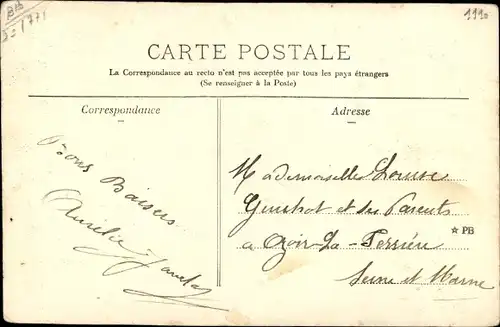 1990
CARTE POSTALE
La Correspondance au recto n'est pas acceptée par tous les pays étrangers
(Se renseigner à la Poste)
Correspondance
Adresse
Bons Baisers
Aurelie
Mademoiselle Louise
et ses Parents
a Ozoir La Ferrière
Seine et Marne
★ PB